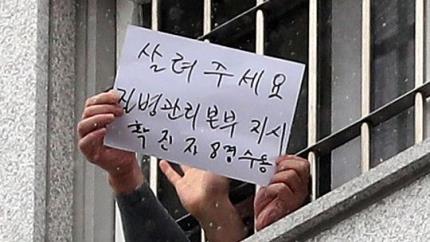 살려주세요
질병관리본부 지시
확진자 8명수용